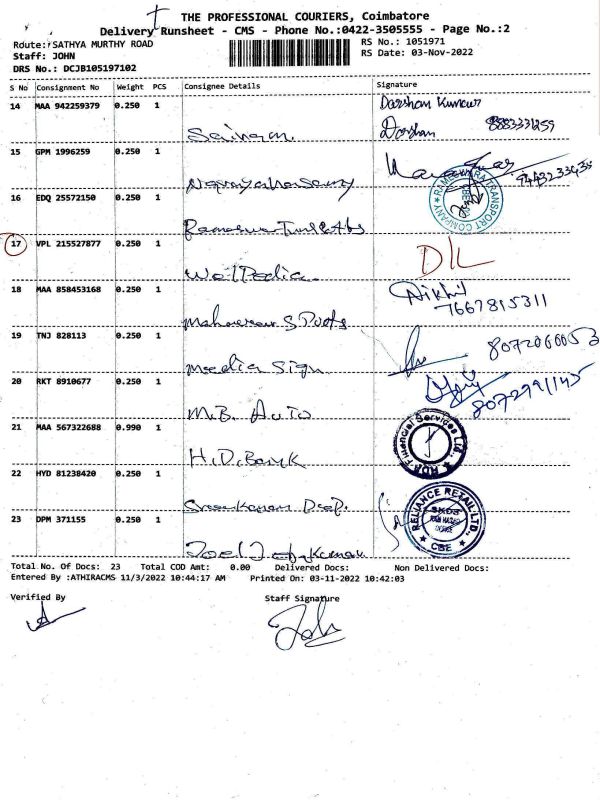 THE PROFESSIONAL COURIERS, Coimbatore
Delivery Runsheet - CMS - Phone No.:0422-3505555 - Page No.:2
Route: SATHYA MURTHY ROAD
RS No.: 1051971
Staff: JOHN
RS Date: 03-Nov-2022
DRS No.: DCJB105197102
S No Consignment No Weight PCS Consignee Details Signature
14 MAA 942259379 0.250 1
Darshan Kumar
Sairam
Darshan
15 GPM 1996259 0.250 1
Narayanasamy
16 EDQ 25572150 0.250 1
TRANSPORT COMPANY
17 VPL 215527877 0.250 1
D/L
WelPedia
18 MAA 858453168 0.250 1
Nikhil
7667815311
19 TNJ 828113 0.250 1
8072060053
Media Sign
20 RKT 8910677 0.250 1
8072991145
M.B. Auto
21 MAA 567322688 0.990 1
Financial Services Ltd.
H.D. Bank
22 HYD 81238420 0.250 1
RELIANCE RETAIL LTD.
CBE
23 DPM 371155 0.250 1
Total No. Of Docs: 23 Total COD Amt: 0.00 Delivered Docs: Non Delivered Docs:
Entered By :ATHIRACMS 11/3/2022 10:44:17 AM Printed On: 03-11-2022 10:42:03
Verified By
Staff Signature
John